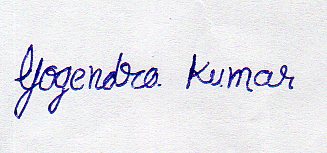 Yogendra Kumar